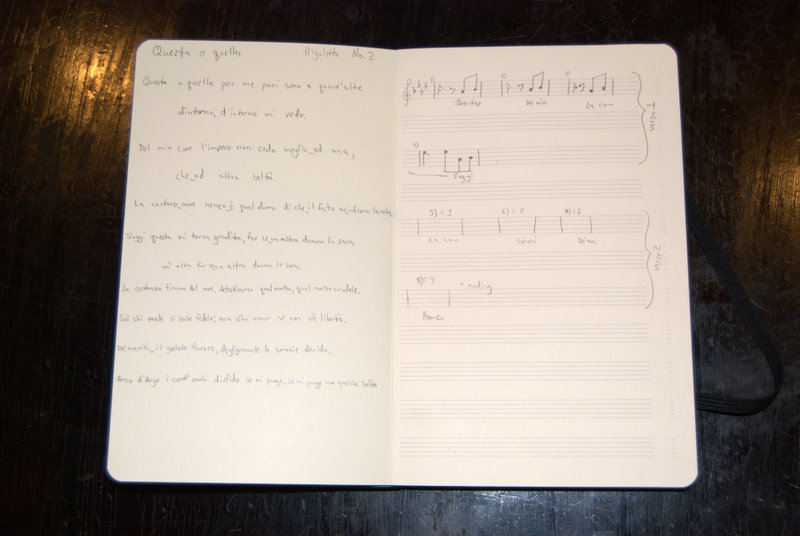 Questa o quella Rigoletto No. 2
Questa o quella per me pari sono a quant'altre
d'intorno, d'intorno mi vedo.
Del mio core l'impero non cedo meglio_ad una,
che_ad altra beltà.
La costoro_avve nenza_è qual dono di che_il fato ne infiora la vita
S'oggi questa mi torna gradita, forse un altra doman lo sara
un' altra forse un altra doman lo sara.
La costanza tiranna del core, detestiamo qual morbo, qual morbo crudele.
Sol chi vuole si serbe fidele, non v'ha amor se non v'è libertà.
De'mariti_il geloso furore, degl'amanti le smanie derido,
Anco d'Argo i cent'occhi disfido se mi punge, se mi punge una qualche beltà
1) 2) 3)
Questa o Del mio La co-
verse 1
4)
ta S'oggi
5) = 1 6) = 2 7) = 3
La co- Sol chi De'ma
verse 2
8) = 4
An-co